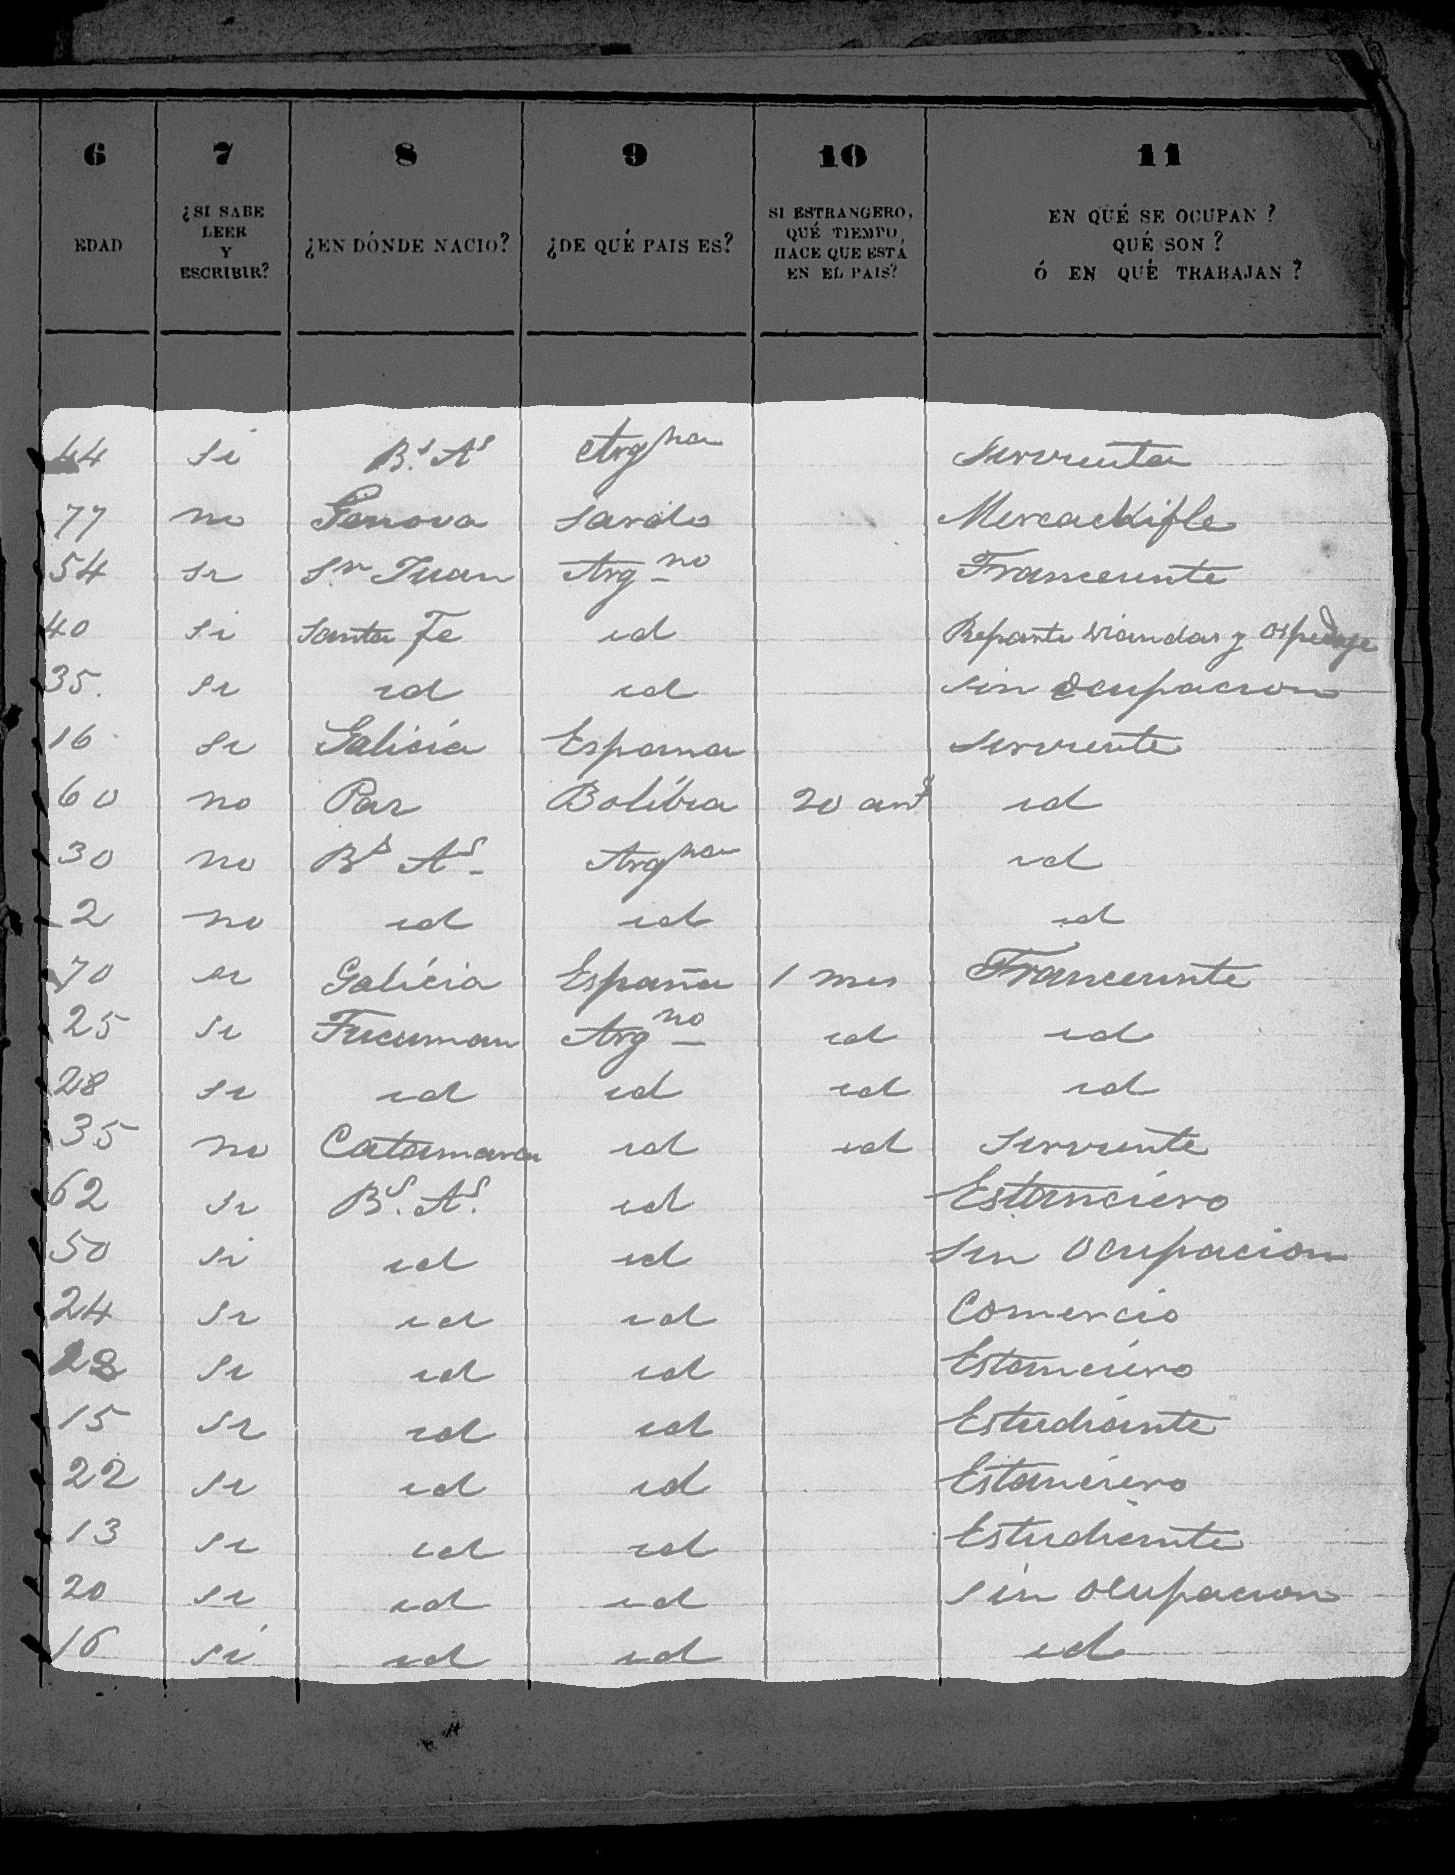 6 7 8 9 10 11
EDAD ¿SI SABE LEER Y ESCRIBIR? ¿EN DÓNDE NACIO? ¿DE QUÉ PAIS ES? SI ESTRANGERO, QUÉ TIEMPO HACE QUE ESTÁ EN EL PAIS? EN QUÉ SE OCUPAN? QUÉ SON? Ó EN QUÉ TRABAJAN?
44 si B.s As Argna sirvienta
77 no Genova sardo Mercachifle
54 si Sn Juan Argno Transeunte
40 si santa Fe id Reparte viandas y ospedaje
35. si id id sin ocupacion
16 si Galicia Espama sirviente
60 no Paz Bolibia 20 ans id
30 no Bs As Argna id
2 no id id id
70 si Galicia España 1 mes Transeunte
25 si Tucuman Argno id id
28 si id id id id
35 no Catamarca id id sirviente
62 si Bs. As. id Estanciero
50 si id id sin ocupacion
24 si id id Comercio
28 si id id Estanciero
15 si id id Estudiante
22 si id id Estanciero
13 si id id Estudiante
20 si id id sin ocupacion
16 si id id id